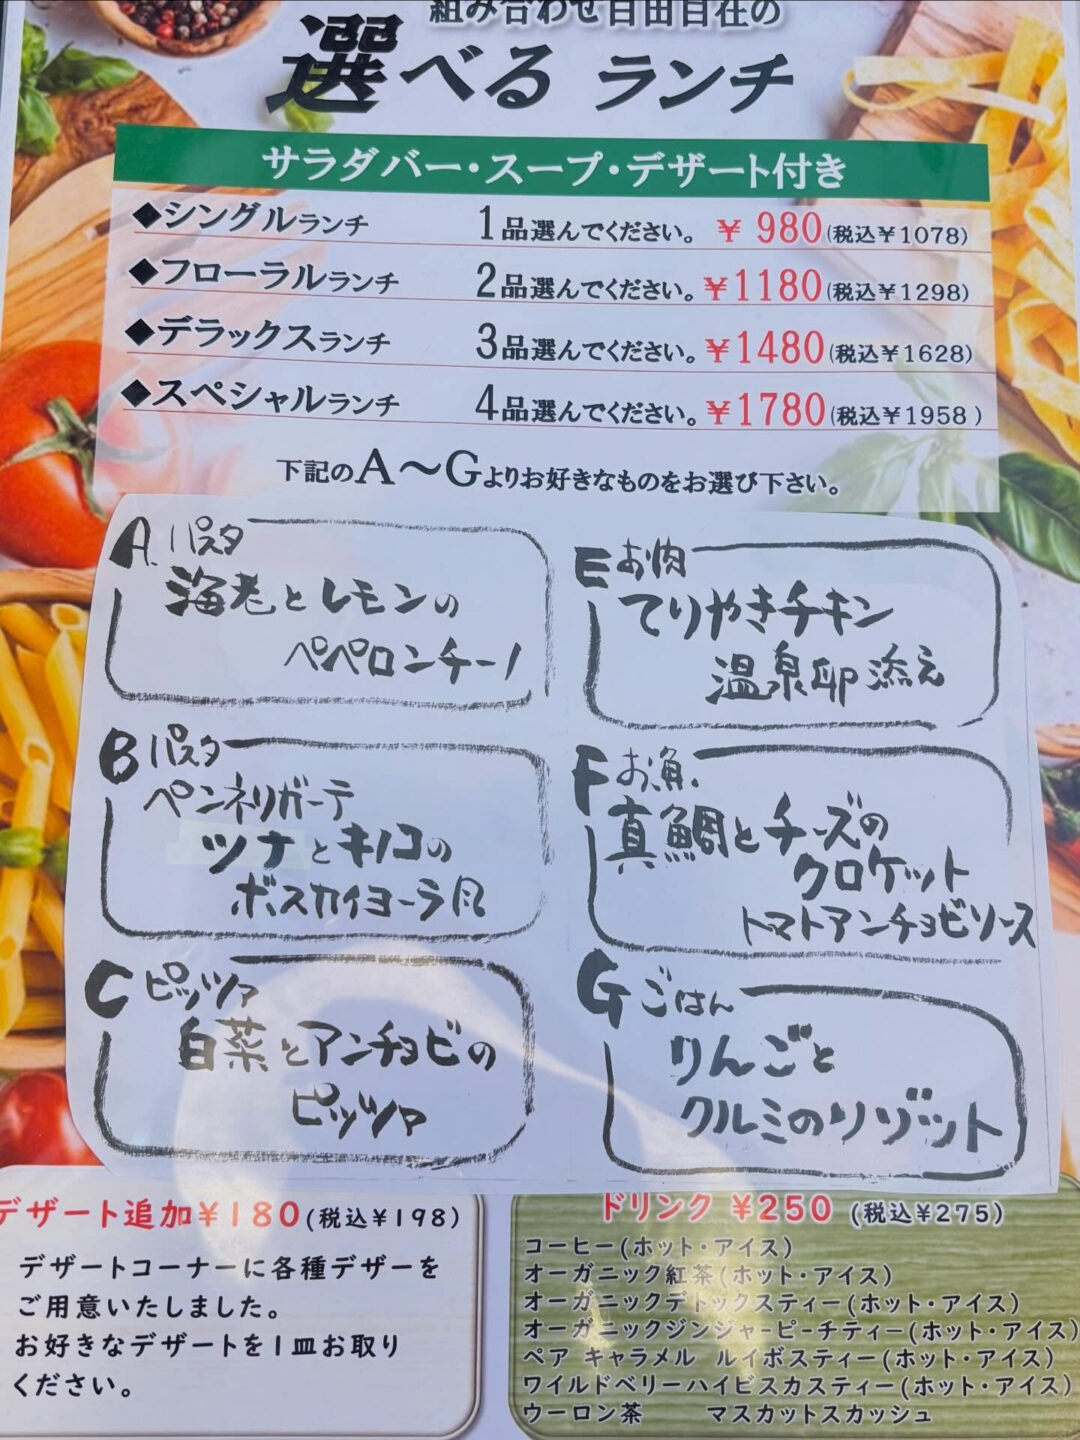 組み合わせ自由自在の
選べる ランチ
サラダバー・スープ・デザート付き
◆シングルランチ 1品選んでください。 ￥ 980(税込￥1078)
◆フローラルランチ 2品選んでください。 ￥1180(税込￥1298)
◆デラックスランチ 3品選んでください。 ￥1480(税込￥1628)
◆スペシャルランチ 4品選んでください。 ￥1780(税込￥1958 )
下記のA～Gよりお好きなものをお選び下さい。
A. パスタ
海老とレモンの
ペペロンチーノ
B パスタ
ペンネリガーテ
ツナとキノコの
ボスカイヨーラ風
C ピッツァ
白菜とアンチョビの
ピッツァ
E お肉
てりやきチキン
温泉卵添え
F お魚.
真鯛とチーズの
クロケット
トマトアンチョビソース
G ごはん
りんごと
クルミのリゾット
デザート追加￥180(税込￥198)
デザートコーナーに各種デザーを
ご用意いたしました。
お好きなデザートを1皿お取り
ください。
ドリンク ￥250 (税込￥275)
コーヒー(ホット・アイス)
オーガニック紅茶(ホット・アイス)
オーガニックデトックスティー(ホット・アイス)
オーガニックジンジャーピーチティー(ホット・アイス)
ペア キャラメル ルイボスティー(ホット・アイス)
ワイルドベリーハイビスカスティー(ホット・アイス)
ウーロン茶 マスカットスカッシュ